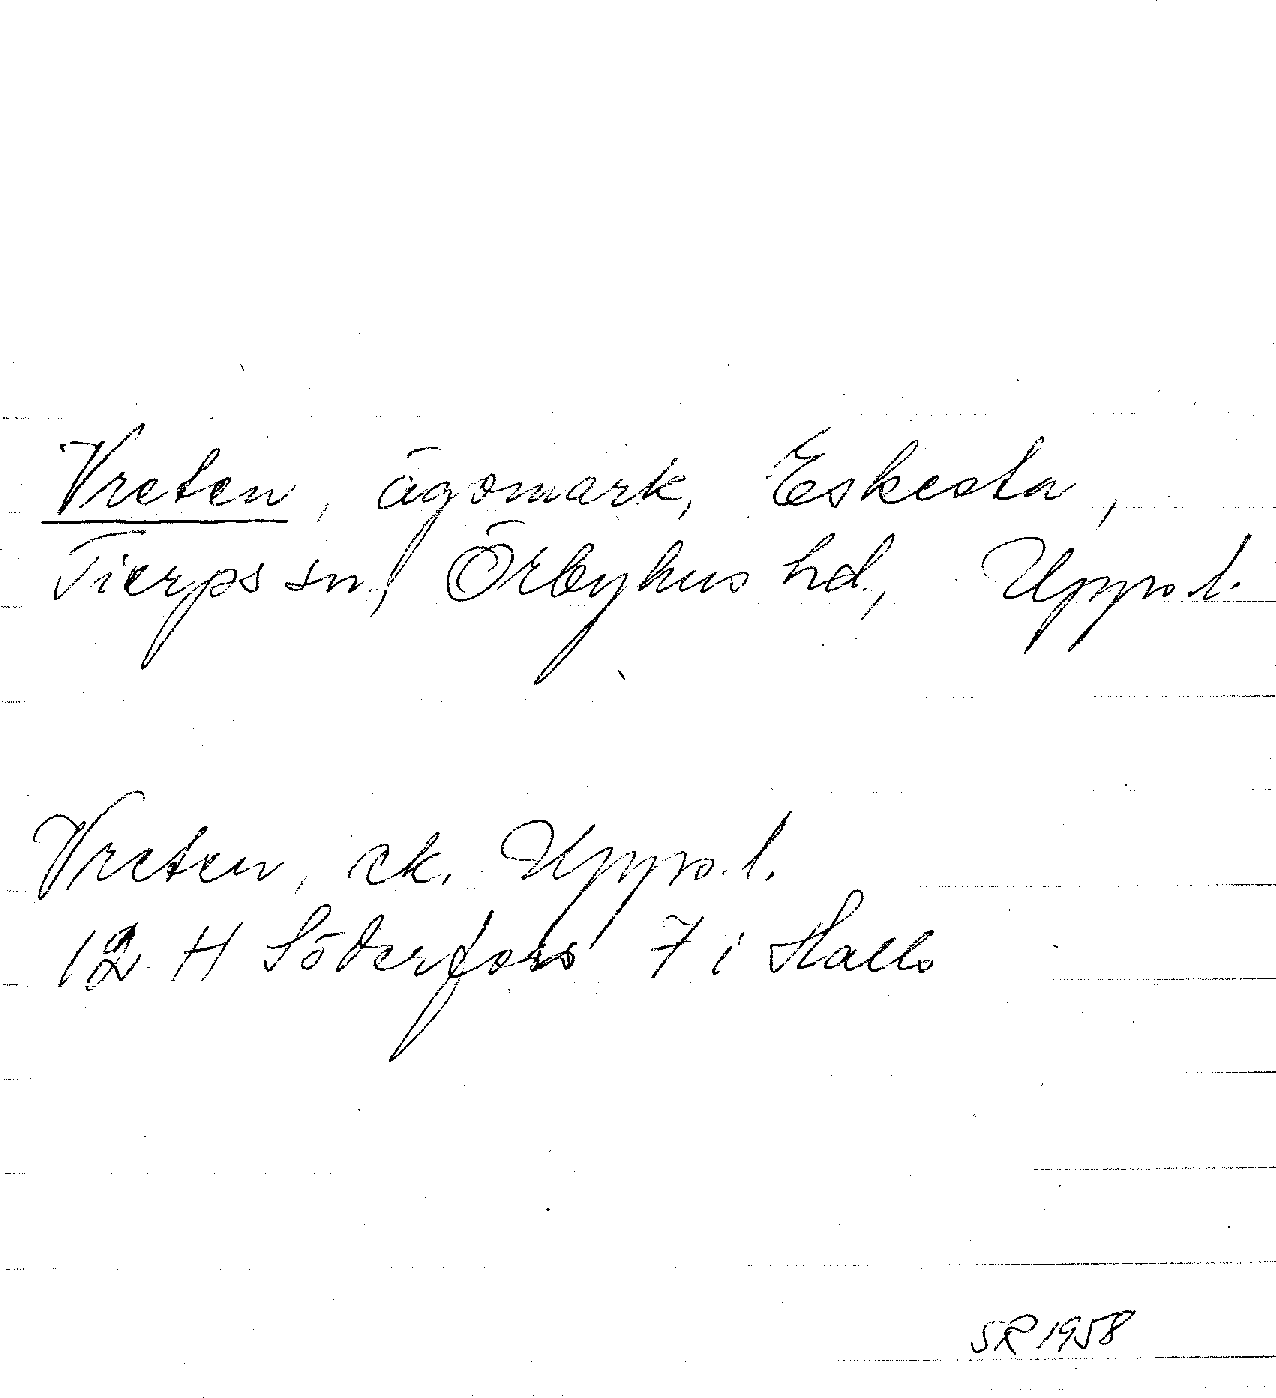 Vreten, ägomark, Eskesta,
Tierps sn, Örbyhus hd, Upps. l.
Vreten, ek. Upps. l.
12 H Söderfors 7 i Hallo
SR 1958